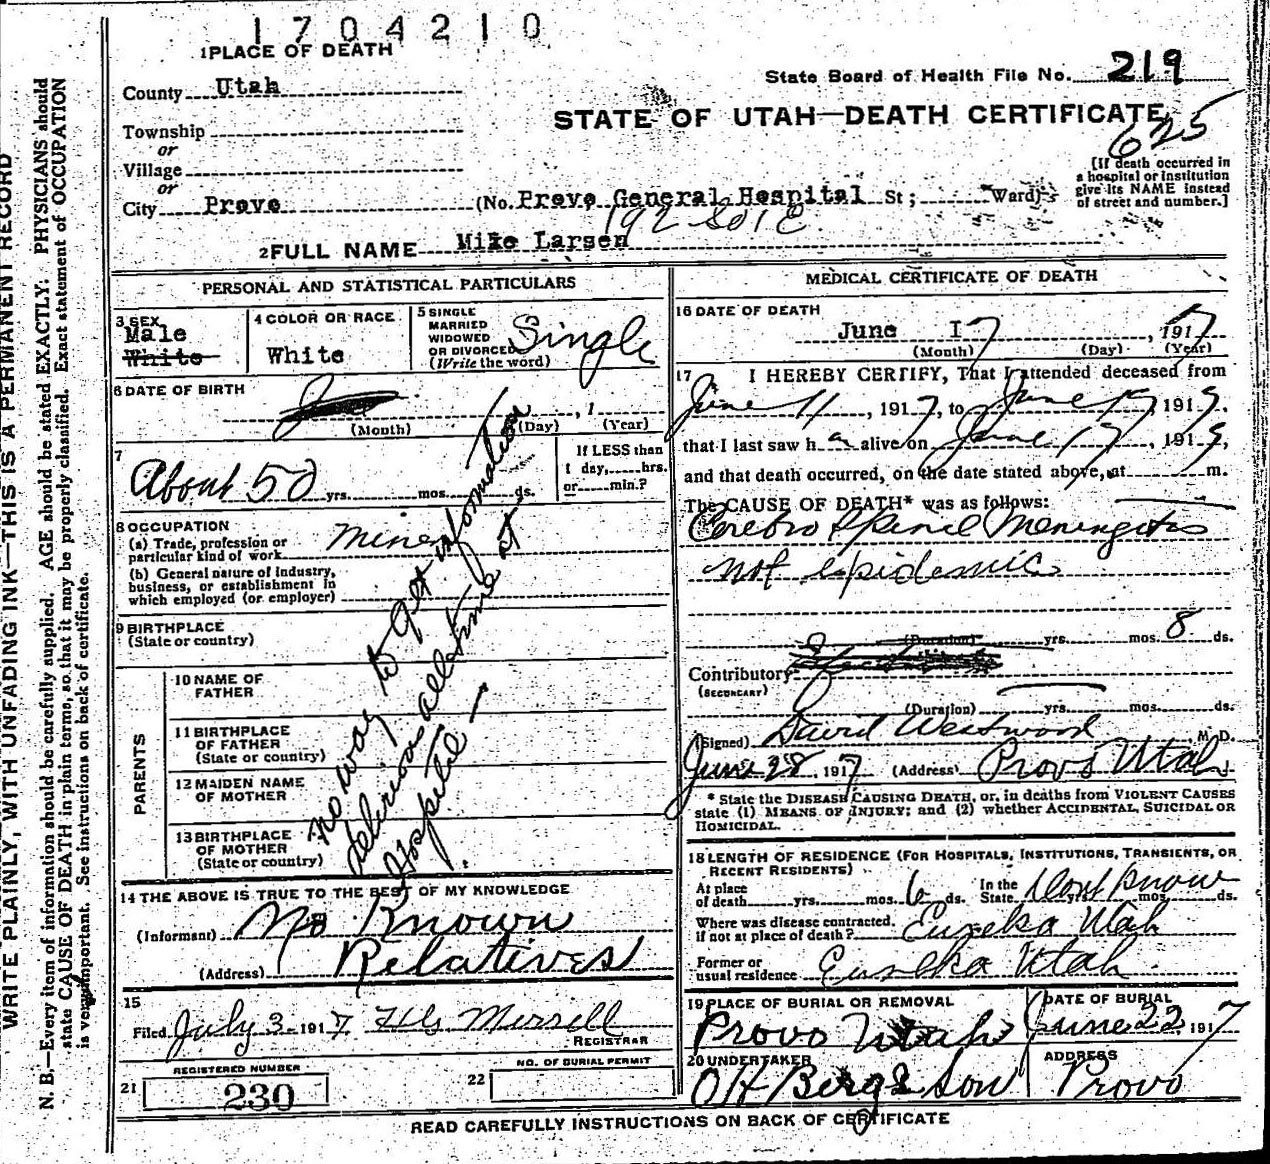 1704210
1 PLACE OF DEATH
County Utah
Township
or
Village
or
City Provo (No. Provo General Hospital St; Ward)
State Board of Health File No. 219
STATE OF UTAH—DEATH CERTIFICATE
625
[If death occurred in
a hospital or institution
give its NAME instead
of street and number.]
192 So 1 E
2 FULL NAME Mike Larsen
PERSONAL AND STATISTICAL PARTICULARS
3 SEX
Male
White
4 COLOR OR RACE
White
5 SINGLE
MARRIED
WIDOWED
OR DIVORCED
(Write the word)
Single
6 DATE OF BIRTH
, 1
(Month) (Day) (Year)
7
About 50 yrs. mos. ds.
If LESS than
1 day, hrs.
or min.?
8 OCCUPATION
(a) Trade, profession or
particular kind of work Miner
(b) General nature of industry,
business, or establishment in
which employed (or employer)
9 BIRTHPLACE
(State or country)
PARENTS
10 NAME OF
FATHER
11 BIRTHPLACE
OF FATHER
(State or country)
12 MAIDEN NAME
OF MOTHER
13 BIRTHPLACE
OF MOTHER
(State or country)
no way to get information
delirious all the time at
Hospital
14 THE ABOVE IS TRUE TO THE BEST OF MY KNOWLEDGE
(Informant) No Known
(Address) Relatives
15
Filed July 3- 1917 Merrell
REGISTRAR
REGISTERED NUMBER
21 230
NO. OF BURIAL PERMIT
22
MEDICAL CERTIFICATE OF DEATH
16 DATE OF DEATH
June 17, 1917
(Month) (Day) (Year)
17 I HEREBY CERTIFY, That I attended deceased from
June 11, 1917, to June 17, 1917.
that I last saw h alive on June 17, 1917,
and that death occurred, on the date stated above, at m.
The CAUSE OF DEATH* was as follows:
Cerebro Spinal Meningitis
not epidemic
(Duration) yrs. mos. 8 ds.
Contributory
(SECONDARY)
(Duration) yrs. mos. ds.
(Signed) David Westwood M. D.
June 28, 1917 (Address) Provo Utah
* State the DISEASE CAUSING DEATH, or, in deaths from VIOLENT CAUSES
state (1) MEANS OF INJURY; and (2) whether ACCIDENTAL, SUICIDAL OR
HOMICIDAL.
18 LENGTH OF RESIDENCE (FOR HOSPITALS, INSTITUTIONS, TRANSIENTS, OR
RECENT RESIDENTS)
At place
of death yrs. mos. 6 ds. In the
State Dont Know yrs. mos. ds.
Where was disease contracted,
if not at place of death? Eureka Utah
Former or
usual residence Eureka Utah
19 PLACE OF BURIAL OR REMOVAL
Provo Utah
DATE OF BURIAL
June 22, 1917
20 UNDERTAKER
OH Berg & Son
ADDRESS
Provo
READ CAREFULLY INSTRUCTIONS ON BACK OF CERTIFICATE
WRITE PLAINLY, WITH UNFADING INK—THIS IS A PERMANENT RECORD
N. B.—Every item of information should be carefully supplied. AGE should be stated EXACTLY. PHYSICIANS should
state CAUSE OF DEATH in plain terms, so that it may be properly classified. Exact statement of OCCUPATION
is very important. See instructions on back of certificate.